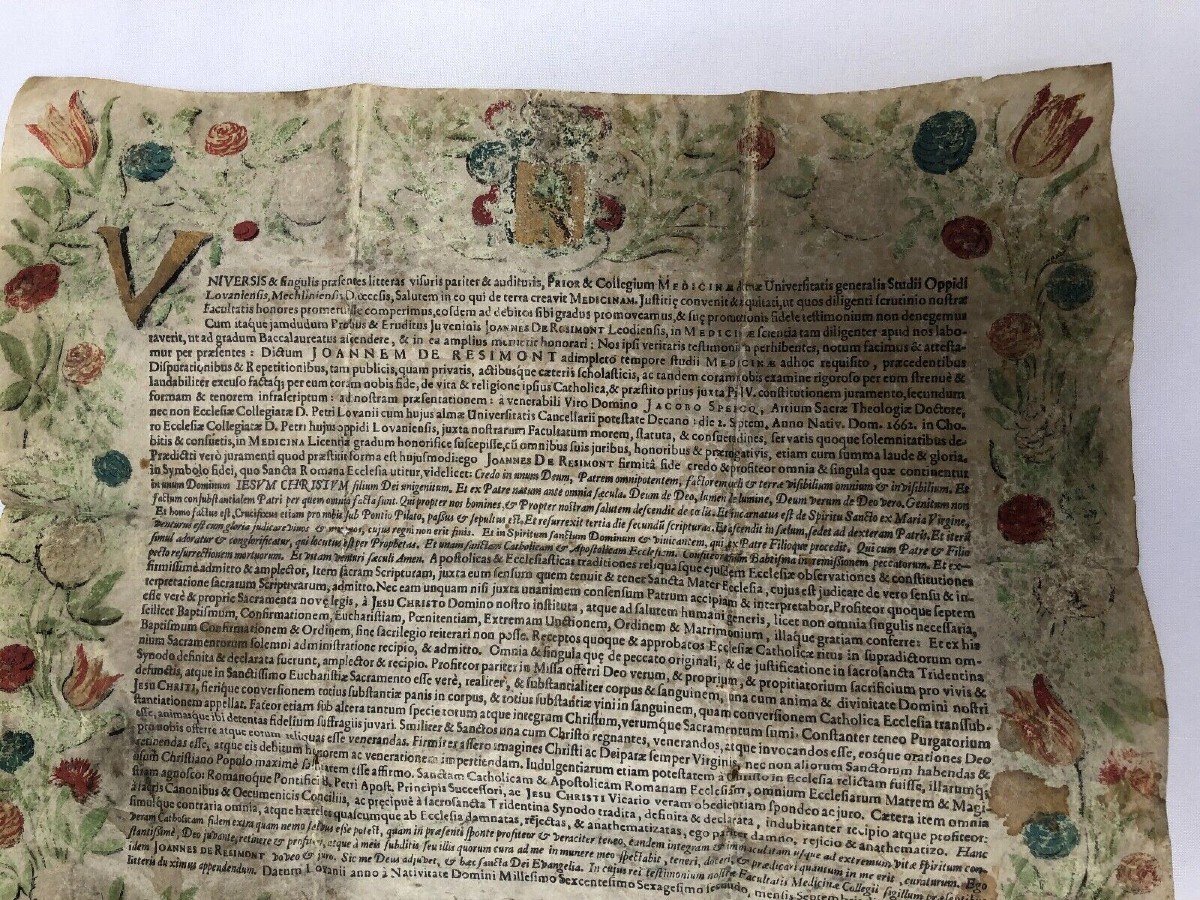 VNIVERSIS & singulis præsentes litteras visuris pariter & audituris, PRIOR & Collegium MEDICINÆ almæ Universitatis generalis Studii Oppidi
Lovaniensis, Mechliniensis Diœcesis, Salutem in eo qui de terra creavit MEDICINAM. Justitię convenit & æquitati, ut quos diligenti scrutinio nostræ
Facultatis honores promeruisse comperimus, eosdem ad debitos sibi gradus promoveamus, & suę promotionis fidele testimonium non denegemus
Cum itaque jamdudum Probus & Eruditus Juvenis JOANNES DE RESIMONT Leodiensis, in MEDICINÆ scientia tam diligenter apud nos labo-
raverit, ut ad gradum Baccalaureatus ascendere, & in ea amplius meruerit honorari: Nos ipsi veritatis testimonium perhibentes, notum facimus & attesta-
mur per præsentes: Dictum JOANNEM DE RESIMONT adimpleto tempore studii MEDICINÆ adhoc requisito, præcedentibus
Disputationibus & Repetitionibus, tam publicis, quam privatis, actibusque cæteris scholasticis, ac tandem coram nobis examine rigoroso per eum strenuè &
laudabiliter excuso factaq; per eum coram nobis fide, de vita & religione ipsius Catholica, & præstito prius juxta Pii V. constitutionem juramento, secundum
formam & tenorem infrascriptum: ad nostram præsentationem: à venerabili Viro Domino JACOBO Artium Sacræ Theologiæ Doctore,
nec non Ecclesiæ Collegiatæ D. Petri Lovanii cum hujus almæ Universitatis Cancellarii potestate Decano: die 2. Septem, Anno Nativ. Dom. 1662. in Cho-
ro Ecclesiæ Collegiatæ D. Petri hujus oppidi Lovaniensis, juxta nostrarum Facultatum morem, statuta, & consuetudines, servatis quoque solemnitatibus de-
bitis & consuetis, in MEDICINA Licentiæ gradum honorifice suscepisse, cū omnibus suis juribus, honoribus & prærogativis, etiam cum summa laude & gloria.
Prædicti verò juramenti quod præstitit forma est hujusmodi: ego JOANNES DE RESIMONT firmitâ fide credo & profiteor omnia & singula quæ continentur
in Symbolo fidei, quo Sancta Romana Ecclesia utitur, videlicet: Credo in unum Deum, Patrem omnipotentem, factorem cœli & terræ visibilium omnium & invisibilium. Et
in unum Dominum IESVM CHRISTVM filium Dei unigenitum. Et ex Patre natum ante omnia sæcula. Deum de Deo, lumen de lumine, Deum verum de Deo vero. Genitum non
factum consubstantialem Patri per quem omnia facta sunt. Qui propter nos homines, & Propter nostram salutem descendit de cœlis: Et incarnatus est de Spiritu Sancto ex Maria Virgine,
Et homo factus est, Crucifixus etiam pro nobis sub Pontio Pilato, passus & sepultus est, Et resurrexit tertia die secundū scripturas. Et ascendit in cælum, sedet ad dexteram Patris, Et iterū
venturus est cum gloria judicare vivos & mortuos, cujus regni non erit finis. Et in Spiritum sanctum Dominum & vivicantem, qui ex Patre Filioque procedit, Qui cum Patre & Filio
simul adoratur & conglorificatur, qui locutus est per Prophetas. Et unam sanctam Catholicam & Apostolicam Ecclesiam. Confiteor unum Baptisma in remissionem peccatorum. Et ex-
pecto resurrectionem mortuorum. Et vitam venturi sæculi Amen. Apostolicas & Ecclesiasticas traditiones reliquasque ejusdem Ecclesiæ observationes & constitutiones
firmissimè admitto & amplector, Item sacram Scripturam, juxta eum sensum quem tenuit & tenet Sancta Mater Ecclesia, cujus est judicare de vero sensu & in-
terpretatione sacrarum Scripturarum, admitto. Nec eam unquam nisi juxta unanimem consensum Patrum accipiam & interpretabor, Profiteor quoque septem
esse verè & propriè Sacramenta novę legis, à JESU CHRISTO Domino nostro instituta, atque ad salutem humani generis, licet non omnia singulis necessaria,
scilicet Baptismum, Confirmationem, Eucharistiam, Pœnitentiam, Extremam Unctionem, Ordinem & Matrimonium, illaque gratiam conferre: Et ex his
Baptismum Confirmationem & Ordinem, sine sacrilegio reiterari non posse. Receptos quoque & approbatos Ecclesiæ Catholicæ ritus in supradictorum om-
nium Sacramentorum solemni administratione recipio, & admitto. Omnia & singula quę de peccato originali, & de justificatione in sacrosancta Tridentina
Synodo definita & declarata fuerunt, amplector & recipio. Profiteor pariter in Missa offerri Deo verum, & proprium, & propitiatorium sacrificium pro vivis &
defunctis, atque in Sanctissimo Eucharistiæ Sacramento esse verè, realiter, & substantialiter corpus & sanguinem, una cum anima & divinitate Domini nostri
JESU CHRISTI, fierique conversionem totius substantiæ panis in corpus, & totius substantiæ vini in sanguinem, quam conversionem Catholica Ecclesia transsub-
stantiationem appellat. Fateor etiam sub altera tantum specie totum atque integram Christum, verumque Sacramentum sumi. Constanter teneo Purgatorium
esse, animasque ibi detentas fidelium suffragiis juvari. Similiter & Sanctos una cum Christo regnantes, venerandos, atque invocandos esse, eosque orationes Deo
pro nobis offerre atque eorum reliquas esse venerandas. Firmiter assero imagines Christi ac Deiparæ semper Virginis, nec non aliorum Sanctorum habendas &
retinendas esse, atque eis debitum honorem ac venerationem impertiendam, Indulgentiarum etiam potestatem à Christo in Ecclesia relictam fuisse, illarumq;
usum Christiano Populo maximè salutarem esse affirmo. Sanctam Catholicam & Apostolicam Romanam Ecclesiam, omnium Ecclesiarum Matrem & Magi-
stram agnosco: Romanoque Pontifici B. Petri Apost. Principis Successori, ac JESU CHRISTI Vicario veram obedientiam spondeo ac juro. Cætera item omnia
à sacris Canonibus & Oecumenicis Conciliis, ac præcipuè à sacrosancta Tridentina Synodo tradita, definita & declarata, indubitanter recipio atque profiteor:
simulque contraria omnia, atque hæreses quascumque ab Ecclesia damnatas, rejectas, & anathematizatas, ego pariter damno, rejicio & anathematizo. Hanc
veram Catholicam fidem extra quam nemo salvus esse potest, quam in præsenti sponte profiteor & veraciter teneo, eandem integram & immaculatam usque ad extremum vitæ spiritum con-
stantissimè, Deo juvante, retinere & profiteri, atque à meis subditis seu illis quorum cura ad me in munere meo spectabit, teneri, doceri, & prædicari quantum in me erit, curaturum. Ego
idem JOANNES DE RESIMONT voveo & juro. Sic me Deus adjuvet, & hæc sancta Dei Evangelia. In cujus rei testimonium nostræ Facultatis Medicinæ Collegii sigillum præsentibus
litteris duximus appendendum. Datum Lovanii anno à Nativitate Domini Millesimo Sexcentesimo Sexagesimo secundo, mensis Septembris